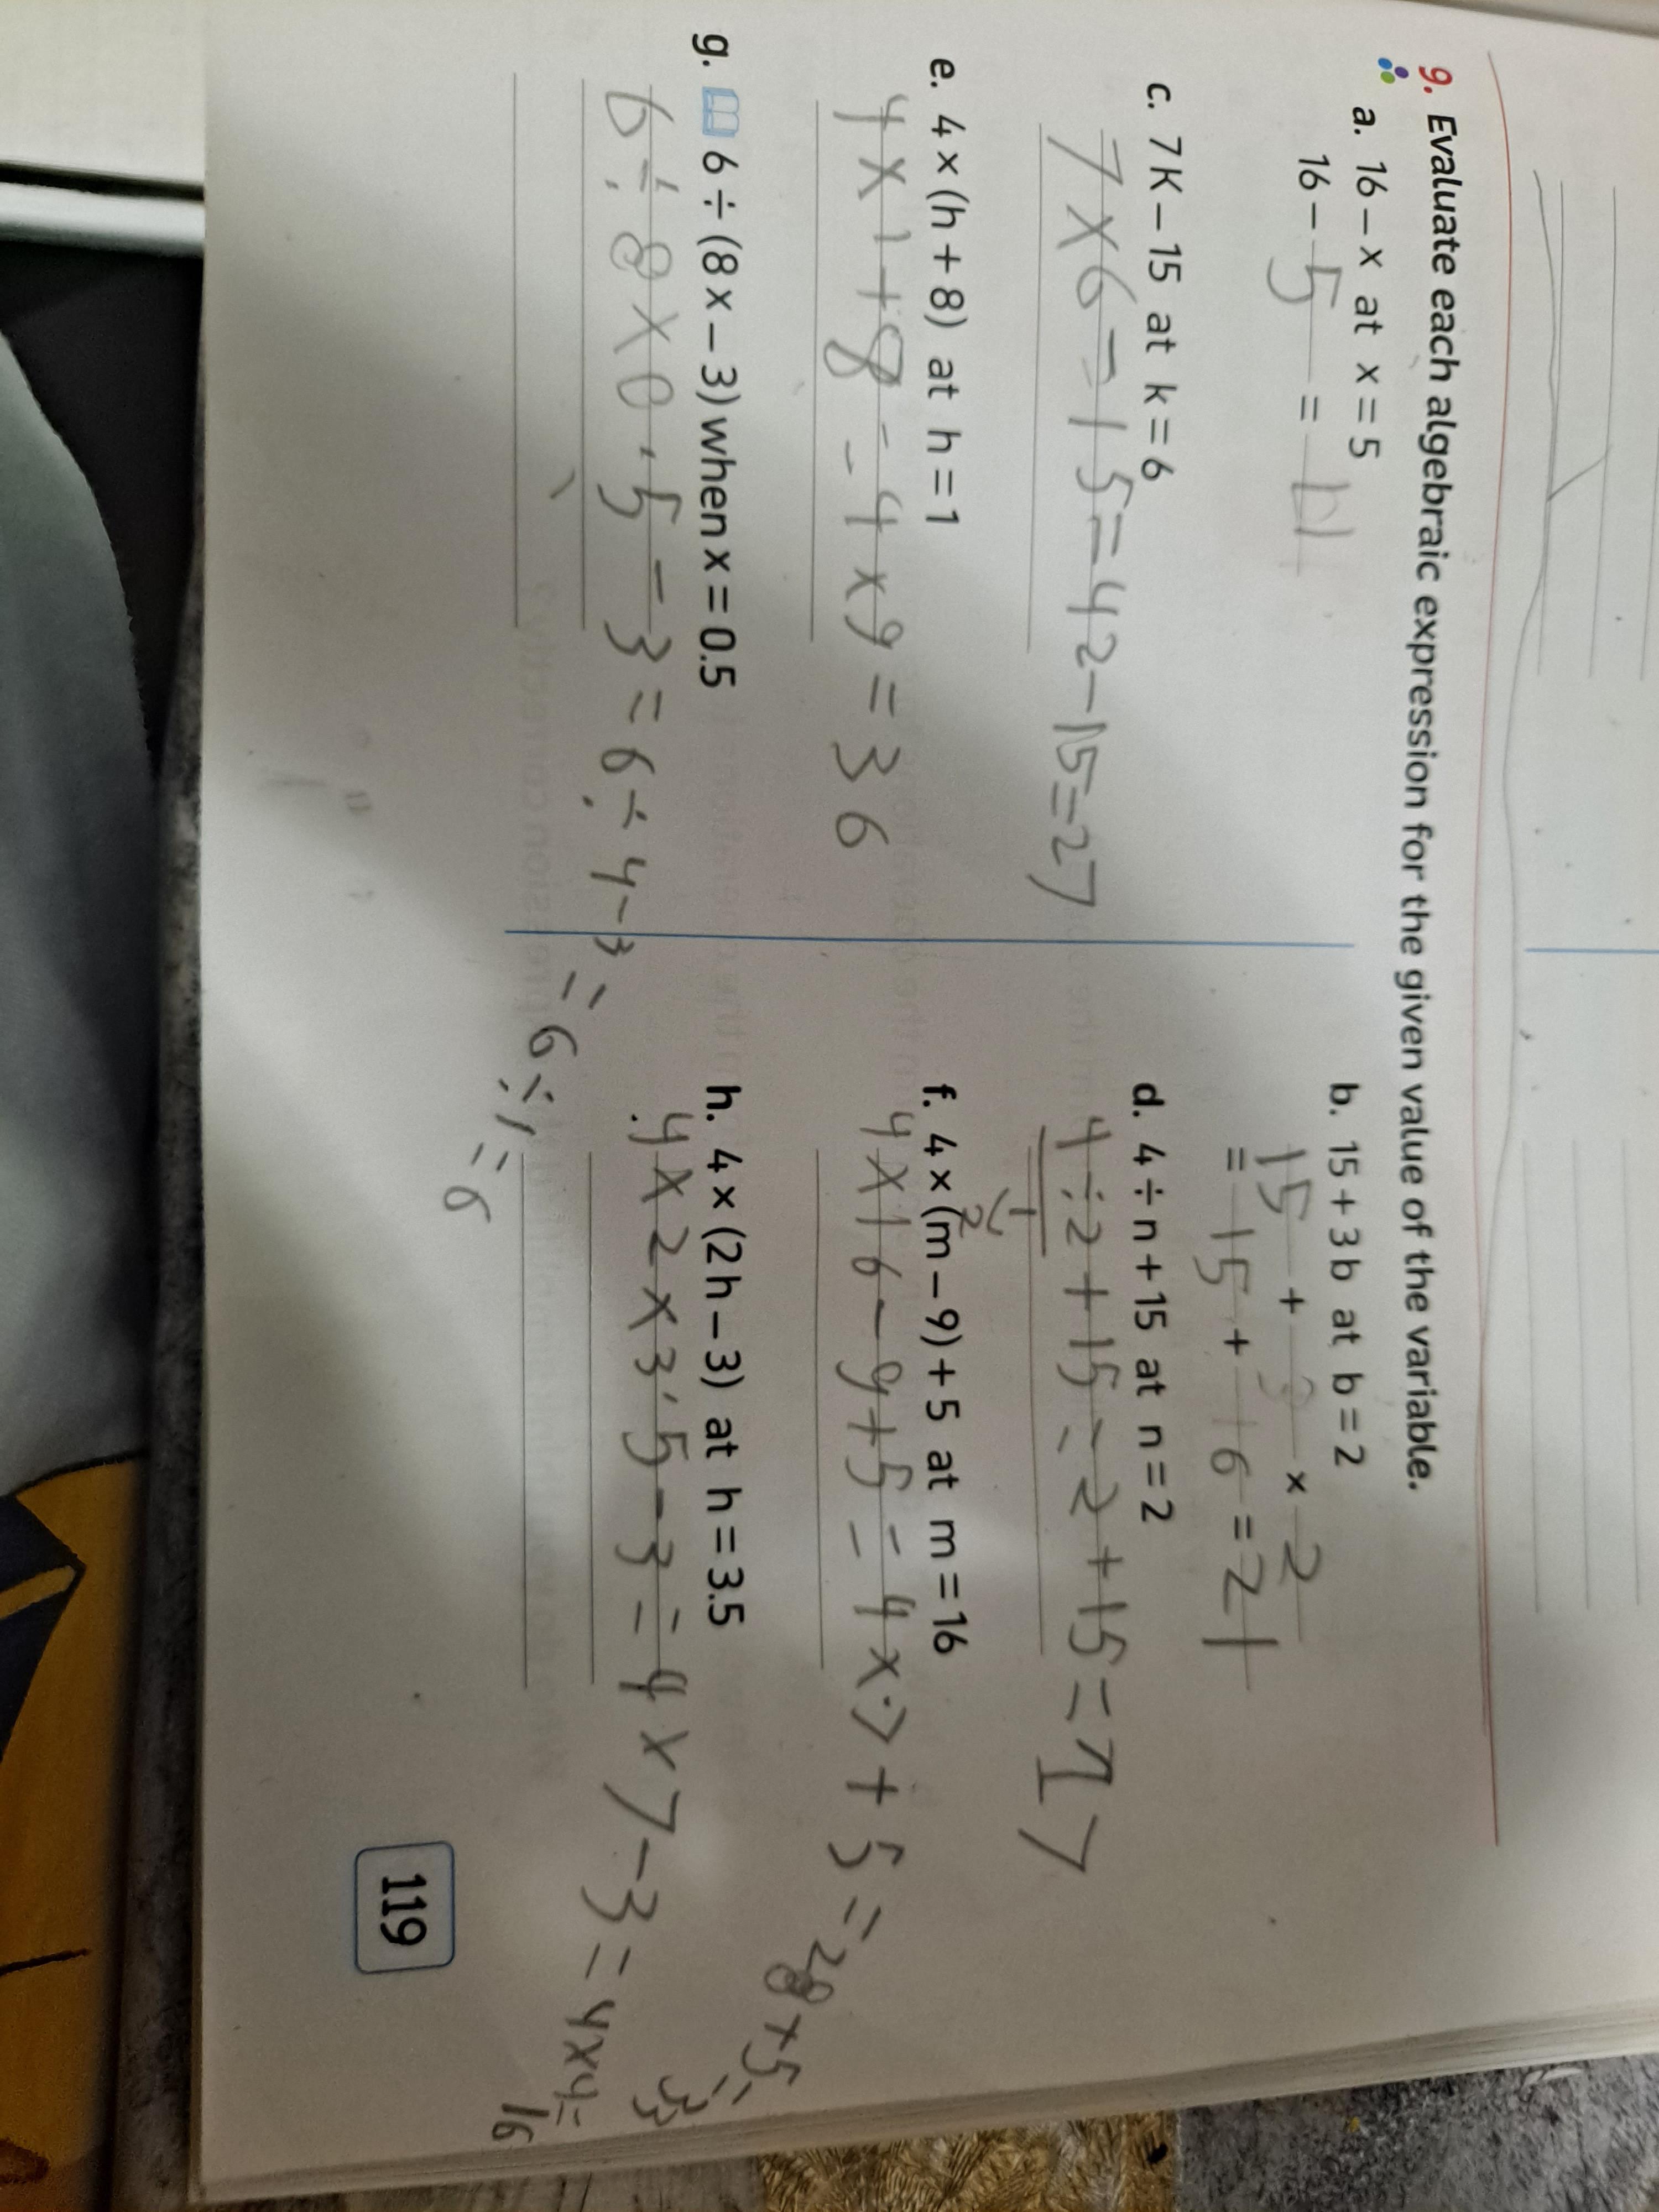 9. Evaluate each algebraic expression for the given value of the variable.
a. 16 – x at x = 5
16 – 5 = 11
b. 15 + 3 b at b = 2
15 + 3 × 2
= 15 + 6 = 21
c. 7 K – 15 at k = 6
7 × 6 – 15 = 42 – 15 = 27
d. 4 ÷ n + 15 at n = 2
4 ÷ 2 + 15 = 2 + 15 = 17
e. 4 × (h + 8) at h = 1
4 × 1 + 8 = 4 × 9 = 36
f. 4 × (m – 9) + 5 at m = 16
4 × 16 – 9 + 5 = 4 × 7 + 5 = 28 + 5 = 33
g. 6 ÷ (8 x – 3) when x = 0.5
6 ÷ 8 × 0.5 – 3 = 6 ÷ 4 – 3 = 6 ÷ 1 = 6
h. 4 × (2 h – 3) at h = 3.5
4 × 2 × 3.5 – 3 = 4 × 7 – 3 = 4 × 4 = 16
119